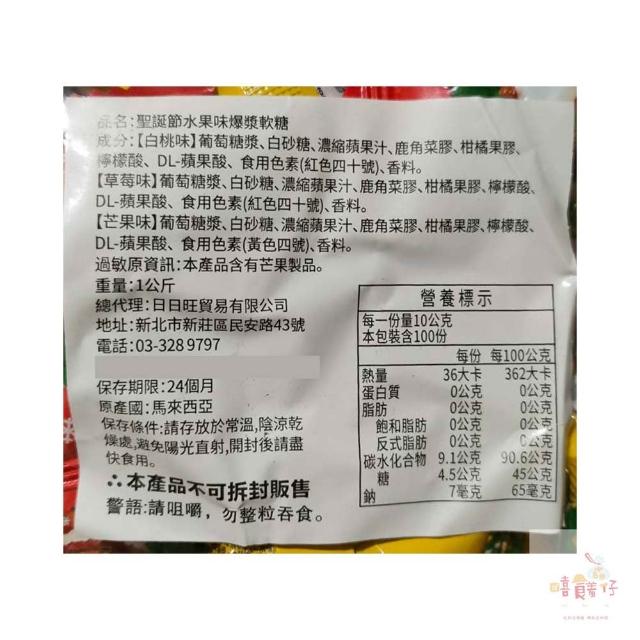 品名:聖誕節水果味爆漿軟糖
成分:【白桃味】葡萄糖漿、白砂糖、濃縮蘋果汁、鹿角菜膠、柑橘果膠、
檸檬酸、DL-蘋果酸、食用色素(紅色四十號)、香料。
【草莓味】葡萄糖漿、白砂糖、濃縮蘋果汁、鹿角菜膠、柑橘果膠、檸檬酸、
DL-蘋果酸、食用色素(紅色四十號)、香料。
【芒果味】葡萄糖漿、白砂糖、濃縮蘋果汁、鹿角菜膠、柑橘果膠、檸檬酸、
DL-蘋果酸、食用色素(黃色四號)、香料。
過敏原資訊:本產品含有芒果製品。
重量:1公斤
總代理:日日旺貿易有限公司
地址:新北市新莊區民安路43號
電話:03-328 9797
保存期限:24個月
原產國:馬來西亞
保存條件:請存放於常溫,陰涼乾
燥處,避免陽光直射,開封後請盡
快食用。
∴本產品不可拆封販售
警語:請咀嚼,勿整粒吞食。
營養標示
每一份量10公克
本包裝含100份
每份 每100公克
熱量 36大卡 362大卡
蛋白質 0公克 0公克
脂肪 0公克 0公克
飽和脂肪 0公克 0公克
反式脂肪 0公克 0公克
碳水化合物 9.1公克 90.6公克
糖 4.5公克 45公克
鈉 7毫克 65毫克